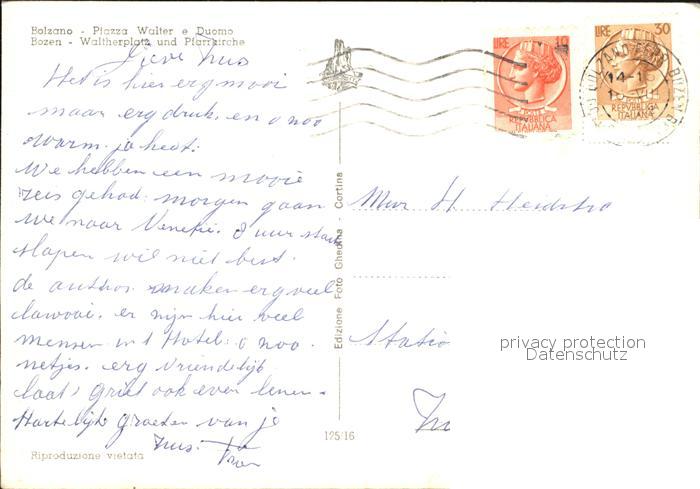 Bolzano - Piazza Walter e Duomo
Bozen - Waltherplatz und Pfarrkirche
Lieve Zus
Het is hier erg mooi
maar erg druk. en o zoo
warm. ja heet.
We hebben een mooie
reis gehad. morgen gaan
we naar Venetie. 3 uur
slapen wil niet best.
de autho's maken erg veel
lawaai. er zijn hier veel
mensen in t Hotel. o zoo
netjes. erg vriendelijk
laat Griet ook even lezen.
Hartelijke groeten van je
zus.
Riproduzione vietata
125/16
Edizione Foto Ghedina - Cortina
LIRE 10
REPVBBLICA
ITALIANA
LIRE 30
REPVBBLICA
ITALIANA
14-1
H.
Statio
privacy protection
Datenschutz